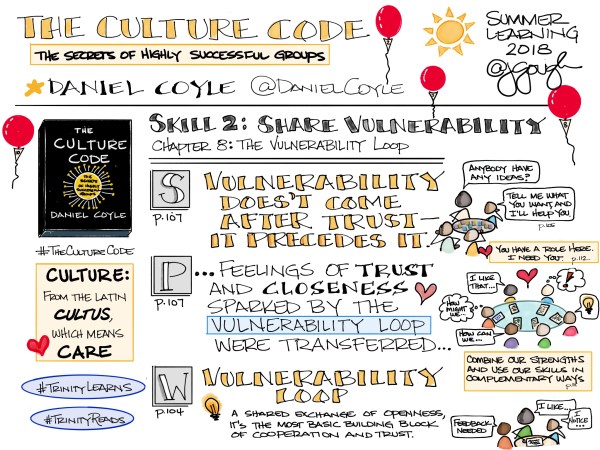 THE CULTURE CODE
THE SECRETS OF HIGHLY SUCCESSFUL GROUPS
DANIEL COYLE @DANIELCOYLE
SUMMER
LEARNING
2018
@jgough
THE
CULTURE
CODE
THE SECRETS OF HIGHLY
SUCCESSFUL
GROUPS
DANIEL COYLE
#THECULTURECODE
CULTURE:
FROM THE LATIN
CULTUS,
WHICH MEANS
CARE
#TRINITYLEARNS
#TRINITYREADS
SKILL 2: SHARE VULNERABILITY
CHAPTER 8: THE VULNERABILITY LOOP
S
p.107
VULNERABILITY
DOES'T COME
AFTER TRUST—
IT PRECEDES IT.
P
p.107
...FEELINGS OF TRUST
AND CLOSENESS
SPARKED BY THE
VULNERABILITY LOOP
WERE TRANSFERRED...
W
p.104
VULNERABILITY
LOOP
A SHARED EXCHANGE OF OPENNESS,
IT'S THE MOST BASIC BUILDING BLOCK
OF COOPERATION AND TRUST.
ANYBODY HAVE
ANY IDEAS?
TELL ME WHAT
YOU WANT, AND
I'LL HELP YOU.
YOU HAVE A ROLE HERE.
I NEED YOU. p.112
I LIKE
THAT...
HOW
MIGHT
WE...
HOW CAN
WE...
COMBINE OUR STRENGTHS
AND USE OUR SKILLS IN
COMPLEMENTARY WAYS
FEEDBACK
NEEDED
I LIKE...
I
NOTICE...